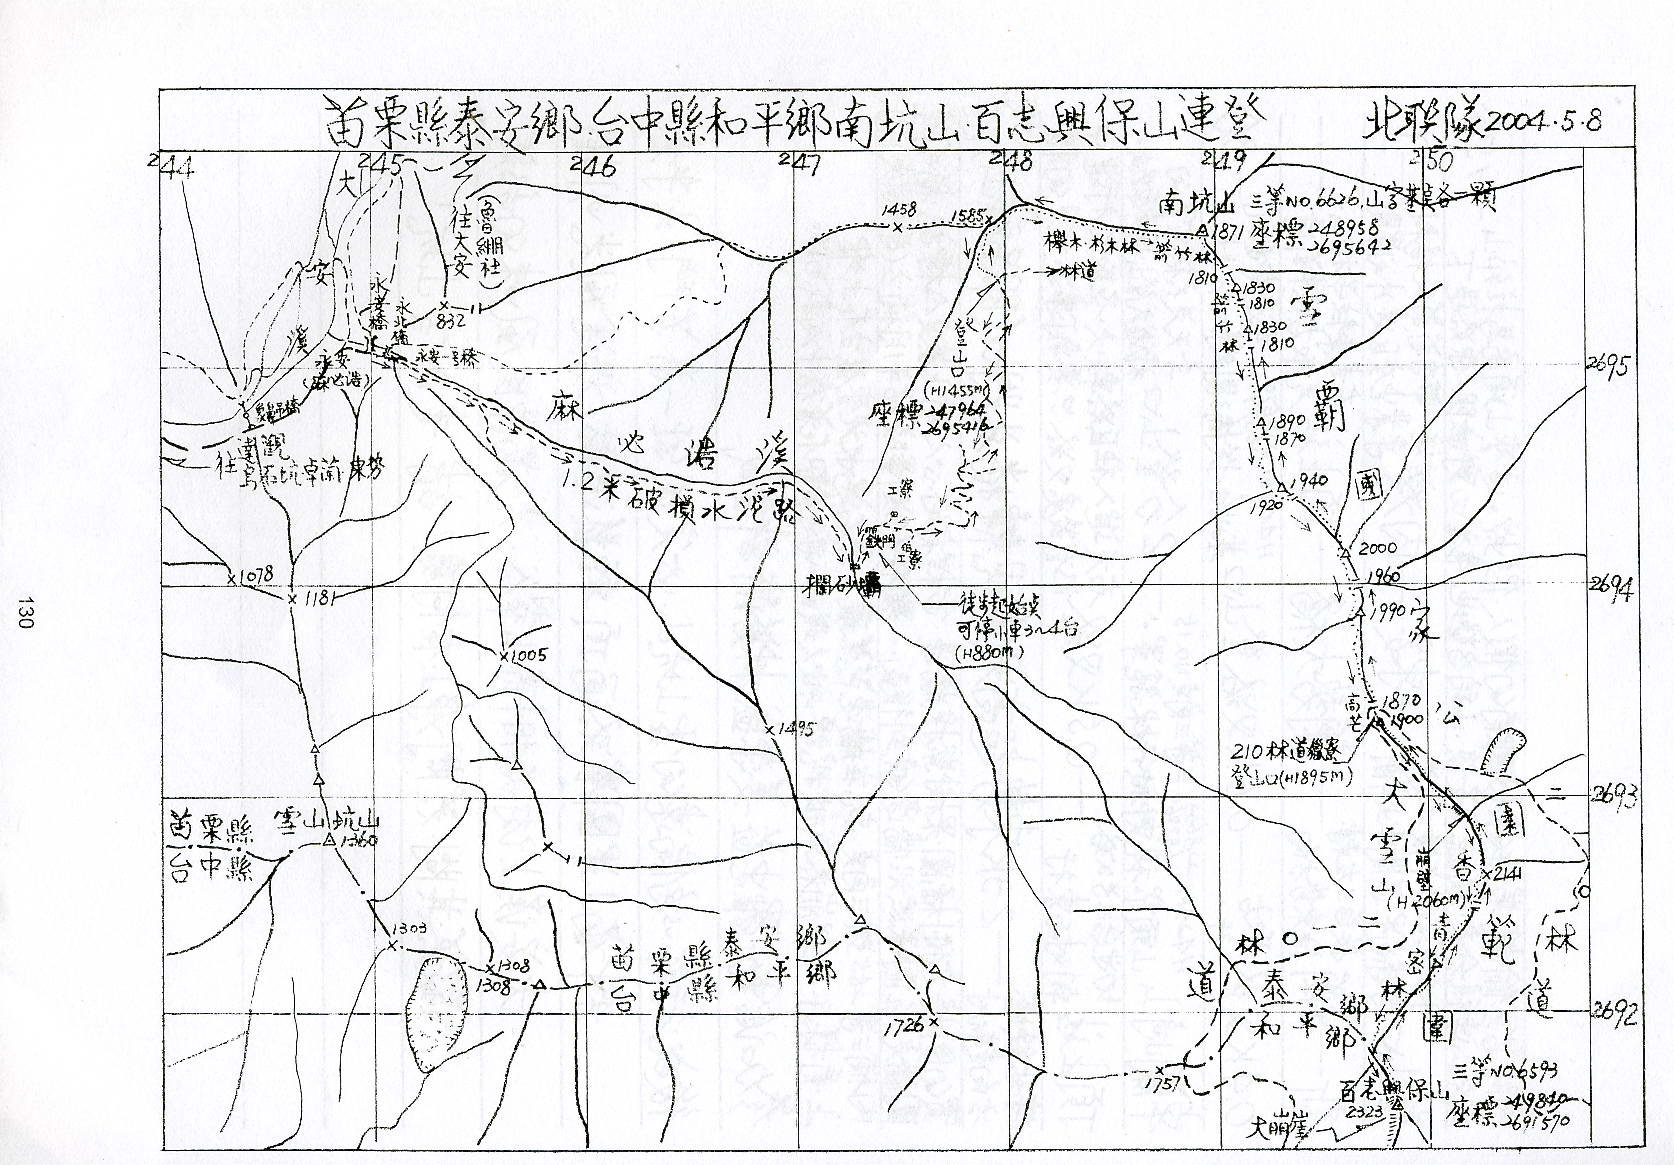 苗栗縣泰安鄉.台中縣和平鄉南坑山.百志興保山連登 北联隊2004.5.8
244 245 246 247 248 249 250
大
安
溪
(魯繃社)
往大安
永安橋
永北橋
永安一号橋
永安
(麻必浩)
×832
1458
1585
南坑山 三等NO.6626,山字基石各一顆
△1871 座標 248958
2695642
櫸木.杉木林
箭竹林
林道
1810
△1830
1810
箭竹林
△1830
1810
雪
霸
2695
登山口
(H1455m)
座標 247964
2695416
△1890
1870
麻必浩溪
1.2米破損水泥路
往
卓蘭.東勢
工寮
鐵門
工寮
△1940
1920
國
2000
1960
△1990
家
2694
攔砂壩
徒步起始点
可停小車3~4台
(H880m)
×1078
×1181
×1005
×1495
高芒
1870
1900
公
210林道獵寮
登山口(H1895m)
2693
大雪山
二
三
〇
林
道
園
香
×2141
崩壁
(H2060m)
青
密
林
範
圍
苗栗縣
台中縣
雪山坑山
△1360
1303
×1308
1308
苗栗縣泰安鄉
台中縣和平鄉
1726
1757
林〇一二
道
泰安鄉
和平鄉
2692
三等NO.6593
座標 249840
2691570
百志興保山
2323
大崩崖
130